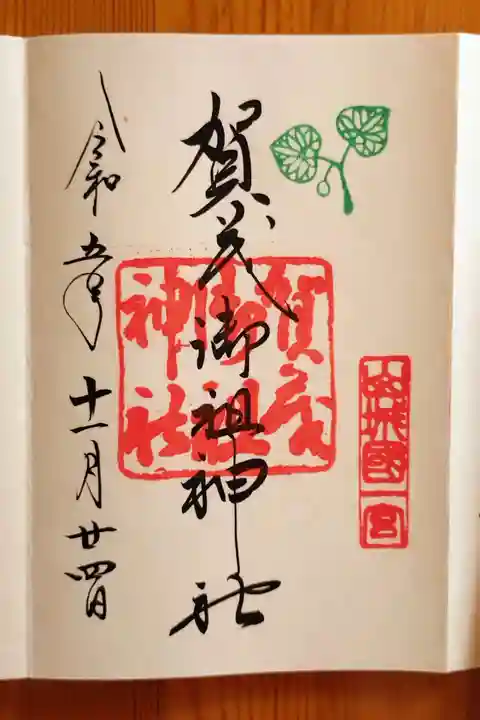 山城國一宮
賀茂御祖神社
賀茂御祖神社
令和五年十一月廿四日